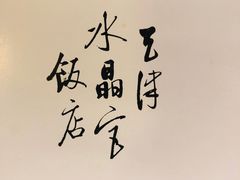 天津
水晶宫
饭店